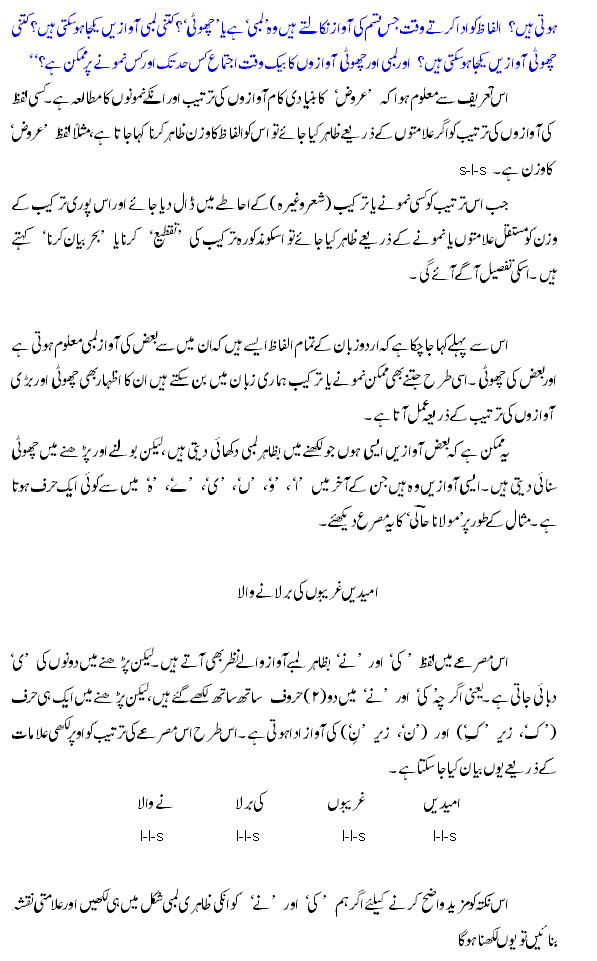 ہوتی ہیں؟ الفاظ کو ادا کرتے وقت جس قسم کی آواز نکالتے ہیں وہ ’لمبی‘ ہے یا ’چھوٹی‘؟ کتنی لمبی آوازیں یکجا ہوسکتی ہیں؟ کتنی
چھوٹی آوازیں یکجا ہوسکتی ہیں؟ اور لمبی اور چھوٹی آوازوں کا بیک وقت اجتماع کس حد تک اور کس نمونے پر ممکن ہے؟‘‘
اس تعریف سے معلوم ہوا کہ ’عروض‘ کا بنیادی کام آوازوں کی ترتیب اور انکے نمونوں کا مطالعہ ہے۔ کسی لفظ
کی آوازوں کی ترتیب کو اگر علامتوں کے ذریعے ظاہر کیا جائے تو اس کو الفاظ کا وزن ظاہر کرنا کہا جاتا ہے، مثلاً لفظ ’عروض‘
کا وزن ہے۔ s-l-s
جب اس ترتیب کو کسی نمونے یا ترکیب (شعر وغیرہ) کے احاطے میں ڈال دیا جائے اور اس پوری ترکیب کے
وزن کو مستقل علامتوں یا نمونے کے ذریعے ظاہر کیا جائے تو اسکو مذکورہ ترکیب کی ’تقطیع‘ کرنا یا ’بحر بیان کرنا‘ کہتے
ہیں۔ اسکی تفصیل آگے آئے گی۔
اس سے پہلے کہا جا چکا ہے کہ اردو زبان کے تمام الفاظ ایسے ہیں کہ ان میں سے بعض کی آواز لمبی معلوم ہوتی ہے
اور بعض کی چھوٹی۔ اسی طرح جتنے بھی ممکن نمونے یا ترکیب ہماری زبان میں بن سکتے ہیں ان کا اظہار بھی چھوٹی اور بڑی
آوازوں کی ترتیب کے ذریعہ عمل آتا ہے۔
یہ ممکن ہے کہ بعض آوازیں ایسی ہوں جو لکھنے میں بظاہر لمبی دکھائی دیتی ہیں، لیکن بولنے اور پڑھنے میں چھوٹی
سنائی دیتی ہیں۔ ایسی آوازیں وہ ہیں جن کے آخر میں ’ا‘، ’و‘، ’ں‘، ’ی‘، ’ے‘، ’ہ‘ میں سے کوئی ایک حرف ہوتا
ہے۔ مثال کے طور پر ’مولانا حالی‘ کا یہ مصرع دیکھئے۔
امیدیں غریبوں کی بر لانے والا
اس مصرعے میں لفظ ’کی‘ اور ’نے‘ بظاہر لمبے آواز والے نظر بھی آتے ہیں۔ لیکن پڑھنے میں دونوں کی ’ی‘
دبائی جاتی ہے۔ یعنی اگرچہ ’کی‘ اور ’نے‘ میں دو (۲) حروف ساتھ ساتھ لکھے گئے ہیں، لیکن پڑھنے میں ایک ہی حرف
(’ک‘، زیر ’کِ‘) اور (’ن‘، زیر ’نِ‘) کی آواز ادا ہوتی ہے۔ اس طرح اس مصرعے کی ترتیب کو اوپر لکھی علامات
کے ذریعے یوں بیان کیا جا سکتا ہے۔
امیدیں غریبوں کی بر لا نے والا
l-l-s l-l-s l-l-s l-l-s
اس نکتہ کو مزید واضح کرنے کیلئے اگر ہم ’کی‘ اور ’نے‘ کو انکی ظاہری لمبی شکل میں ہی لکھیں اور علامتی نقشہ
بنائیں تو یوں لکھنا ہوگا